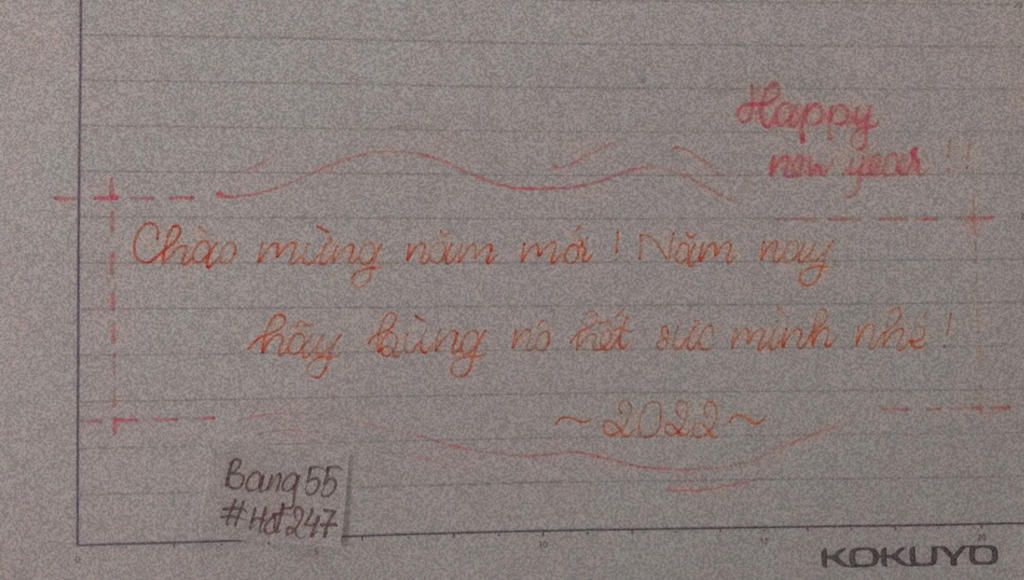 Happy
new year !!
Chào mừng năm mới ! Năm nay
hãy bùng nổ hết sức mình nhé !
~ 2022 ~
Bang55
#Hot247
KOKUYO